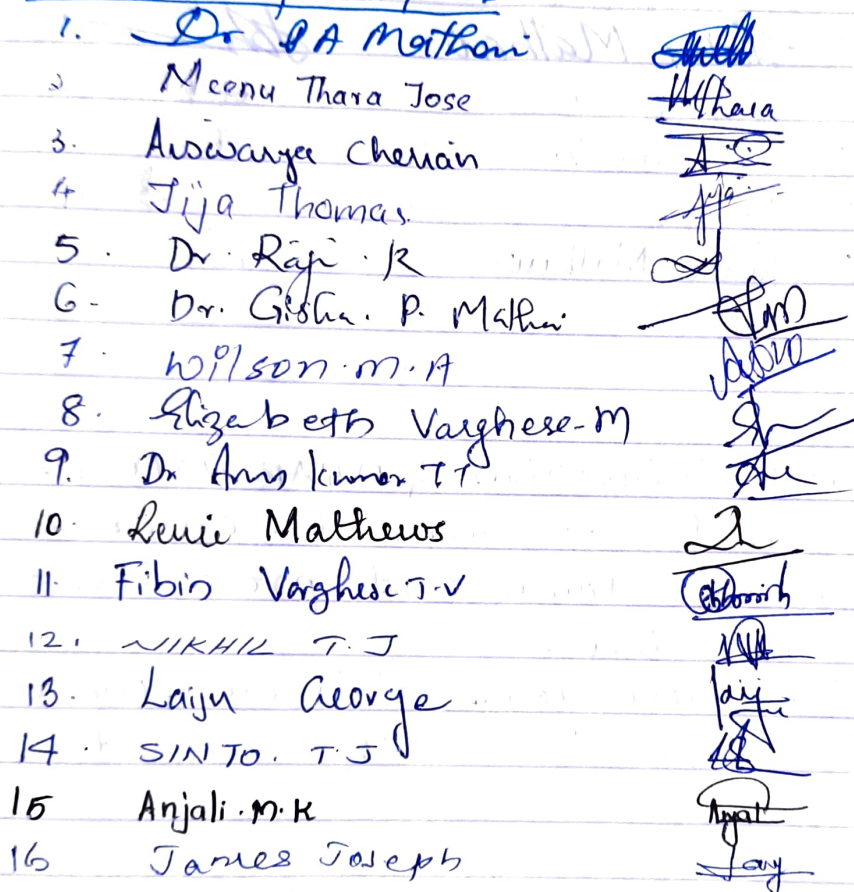 1. Dr P A Mathani
2 Meenu Thara Jose Mthara
3. Aiswarya Cherian
4 Jija Thomas. Jija
5. Dr. Raji. R
6- Dr. Gisha. P. Mathai
7. Wilson.m.A
8. Elizabeth Varghese-M
9. Dr Arun kumar T T
10. Renie Mathews
11. Fibin Varghese T.V
12. NIKHIL T.J
13. Laiju George
14. SINTO. T.J
15 Anjali.M.K Anjali
16 James Joseph